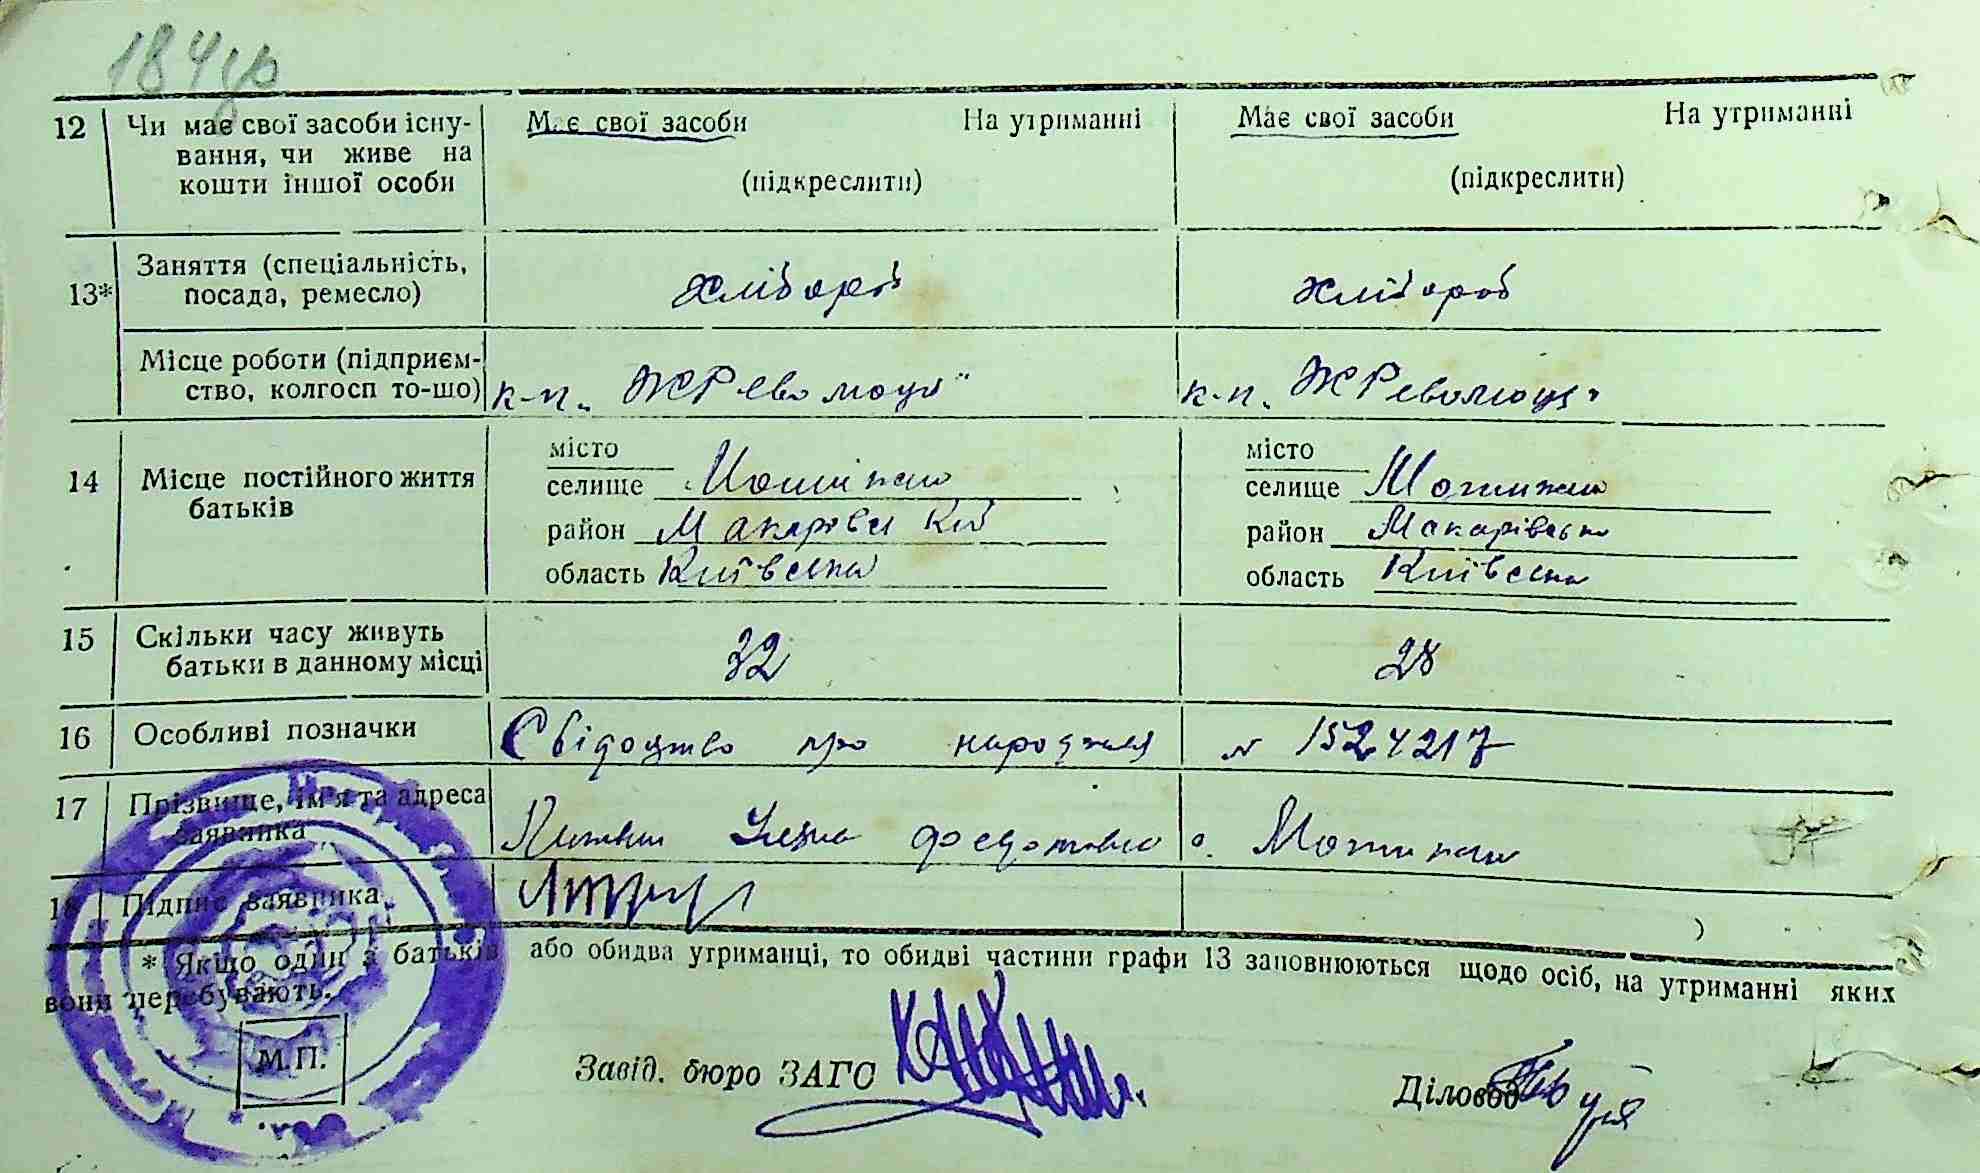 184
12 Чи має свої засоби існу- Має свої засоби На утриманні Має свої засоби На утриманні
вання, чи живе на
кошти іншої особи (підкреслити) (підкреслити)
13* Заняття (спеціальність,
посада, ремесло) хлібороб хлібороб
Місце роботи (підприєм-
ство, колгосп то-що) к-п. "ЖРеволюція" к-п. "ЖРеволюція"
14 Місце постійного життя
батьків
місто місто
селище Мотижин селище Мотижин
район Макарівський район Макарівськ
область Київська область Київська
15 Скільки часу живуть
батьки в данному місці 32 28
16 Особливі позначки Свідоцтво про народження № 1524217
17 Прізвище, ім'я та адреса
заявника Федотовна с. Мотижин
18 Підпис заявника
* Якщо один з батьків або обидва утриманці, то обидві частини графи 13 заповнюються щодо осіб, на утриманні яких
вони перебувають.
М.П.
Завід. бюро ЗАГС
Діловод